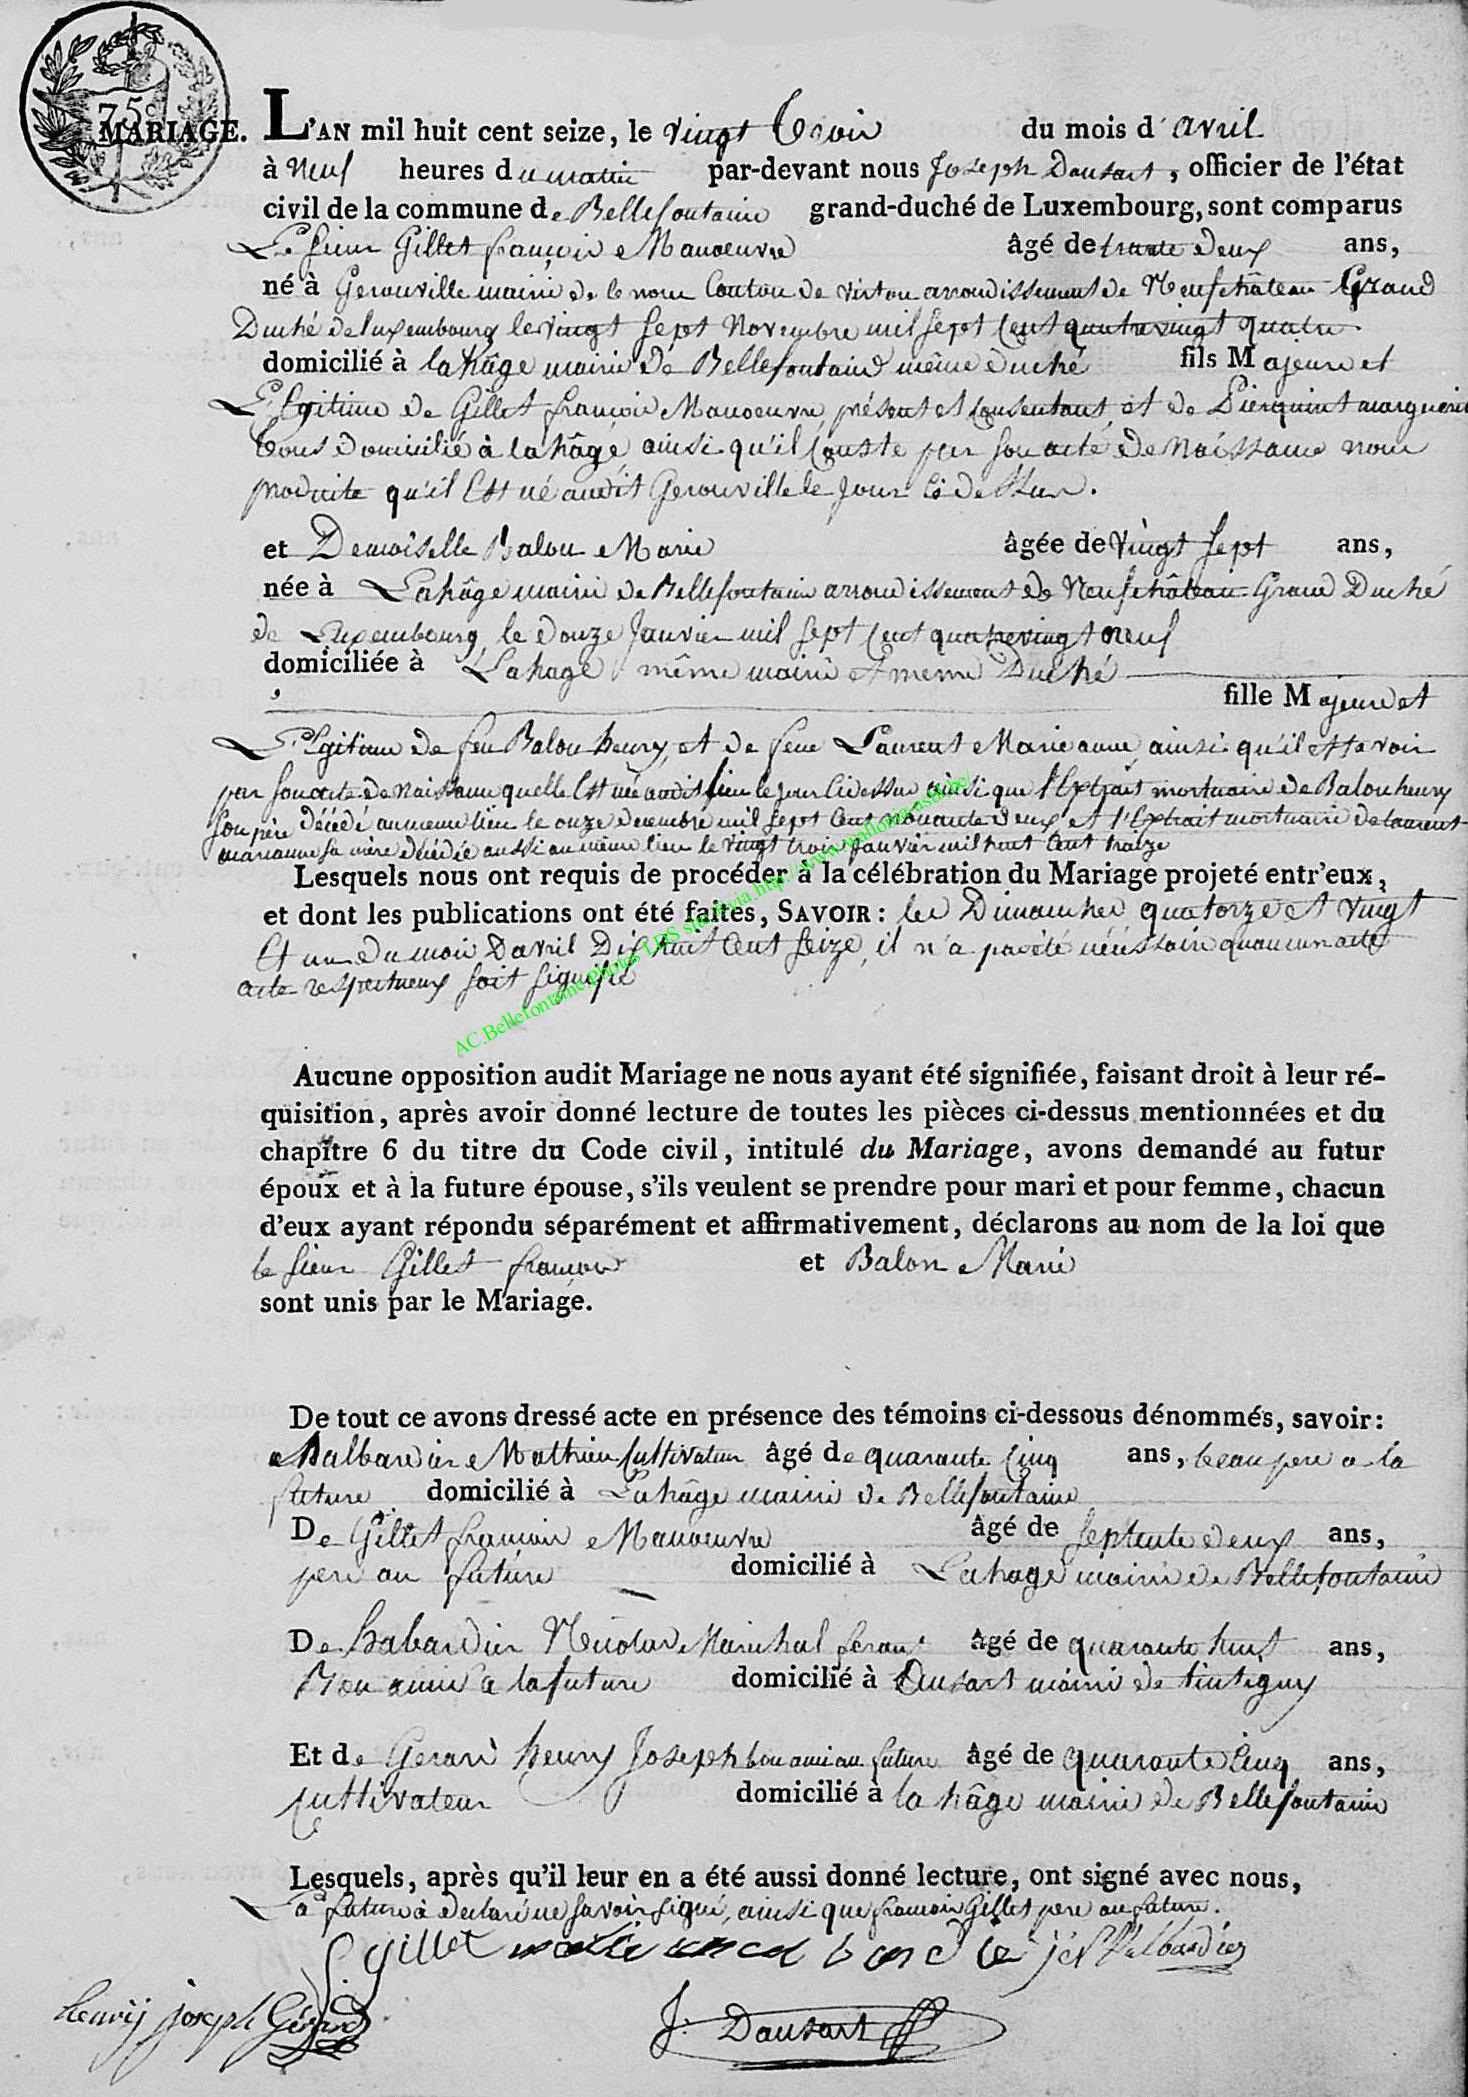 75c
MARIAGE. L'AN mil huit cent seize, le vingt trois du mois d'avril
à neuf heures du matin par-devant nous Joseph Dausart, officier de l'état
civil de la commune de Bellefontaine grand-duché de Luxembourg, sont comparus
Le sieur Gillet françois Manoeuvre âgé de trante deux ans,
né à Gerouville mairie de le nom Couton de virton arrondissement de Neufchâteau Grand
Duché de luxembourg le vingt sept Novembre mil sept Cent quatre vingt quatre
domicilié à lahâge mairie de Bellefontaine même duché fils Majeure et
Legitime de Gillet françois Manoeuvre présent et Consentant et de Pierquint marguerit
tous domicilié à lahâge ainsi qu'il Conste par son acte de Naissance nous
produite qu'il Est né audit Gerouville le jour Ci dessur.
et Demoiselle Balon Marie âgée de vingt sept ans,
née à Lahâge mairie de Bellefontaine arrondissement de Neufchâteau Grand Duché
de Luxembourg le douze Janvier mil sept Cent quatrevingt neuf
domiciliée à Lahage même mairie et meme Duché
fille Majeure et
Legitime de feu Balon henry et de feue Laurent Marie anne, ainsi qu'il
par son acte de Naissance quelle Est née audit lieu le jour Cidessu ainsi que l'Extrait mortuaire de Balon henry
son père décédé au meme lieu le onze decembre mil sept Cent nonante deux et l'Extrait mortuaire de Laurent
marianne sa mère décédée aussi au même lieu le vingt trois janvier mil huit Cent traize
Lesquels nous ont requis de procéder à la célébration du Mariage projeté entr'eux,
et dont les publications ont été faites, SAVOIR: les Dimanches quatorze et vingt
Et un du mois D'avril Dix huit Cent seize, il n'a pas été nécéssaire qu'aucun acte
acte respectueux soit signifié
AC.Bellefontaine photos LDS site & via http://www.wallonia-asbl.be/
Aucune opposition audit Mariage ne nous ayant été signifiée, faisant droit à leur ré-
quisition, après avoir donné lecture de toutes les pièces ci-dessus mentionnées et du
chapitre 6 du titre du Code civil, intitulé du Mariage, avons demandé au futur
époux et à la future épouse, s'ils veulent se prendre pour mari et pour femme, chacun
d'eux ayant répondu séparément et affirmativement, déclarons au nom de la loi que
le sieur Gillet françois et Balon Marie
sont unis par le Mariage.
De tout ce avons dressé acte en présence des témoins ci-dessous dénommés, savoir:
Halbardier Mathieu Cultivateur âgé de quarante Cinq ans, beau pere a la
future domicilié à Lahâge mairie de Bellefontaine
De Gillet françois Manoeuvre âgé de septente deux ans,
pere au future domicilié à Lahage mairie de Bellefontaine
De Habardier Nicolas Marechal ferant âgé de quarante huit ans,
Bon amie a la future domicilié à Ansart mairie de tintigny
Et de Gerard henry Joseph bon ami au future âgé de quarante Cinq ans,
Cultivateur domicilié à la hâge mairie de Bellefontaine
Lesquels, après qu'il leur en a été aussi donné lecture, ont signé avec nous,
La future à declaré ne savoir signé, ainsi que françois Gillet pere au future.
f gillet halbardier
henrÿ joseph Gérard
J. Dausart